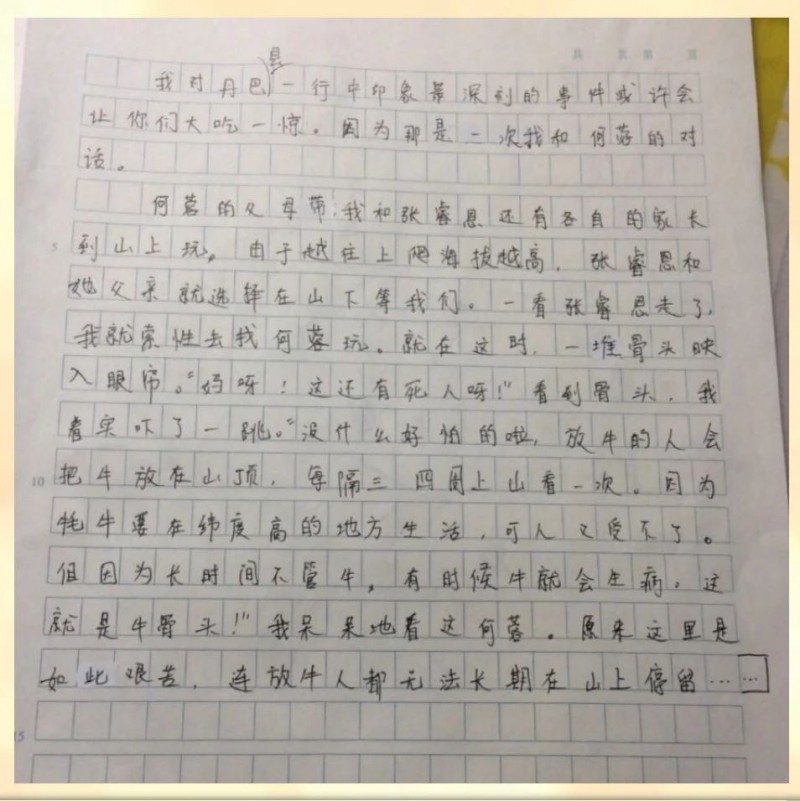 我对丹巴县一行中印象最深刻的事件或许会
让你们大吃一惊。因为那是一次我和何蓉的对
话。
何蓉的父母带我和张睿恩还有各自的家长
5 到山上玩。由于越往上爬海拔越高，张睿恩和
她父亲就选择在山下等我们。一看张睿恩走了，
我就索性去找何蓉玩。就在这时，一堆骨头映
入眼帘。“妈呀！这还有死人呀！”看到骨头，我
着实吓了一跳。“没什么好怕的啦，放牛的人会
10 把牛放在山顶，每隔三四周上山看一次。因为
牦牛要在纬度高的地方生活，可人又受不了。
但因为长时间不管牛，有时候牛就会生病，这
就是牛骨头！”我呆呆地看这何蓉。原来这里是
如此艰苦，连放牛人都无法长期在山上停留……
15